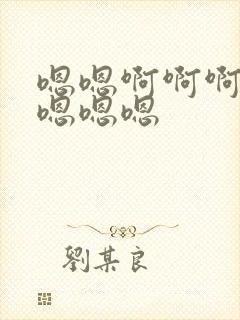 嗯嗯啊啊啊
嗯嗯嗯
劉某良